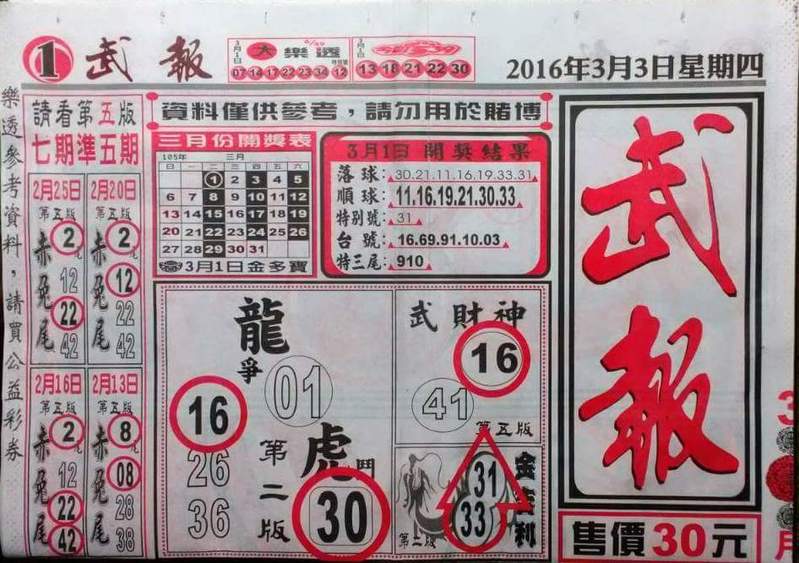 1 武報
3月1日 大樂透 特別號
07 14 17 22 23 34 12
3月1日
13 18 21 22 30
2016年3月3日星期四
樂透參考資料，請買公益彩券
請看第五版
七期準五期
2月25日 2月20日
第五版 第五版
赤兔尾 2 12 22 42
赤兔尾 2 12 22 42
2月16日 2月13日
第五版 第五版
赤兔尾 2 12 22 42
赤兔尾 8 08 28 38
資料僅供參考，請勿用於賭博
三月份開獎表
105年 三月
日 一 二 三 四 五 六
1 2 3 4 5
6 7 8 9 10 11 12
13 14 15 16 17 18 19
20 21 22 23 24 25 26
27 28 29 30 31
3月1日金多寶
3月1日 開獎結果
落球:30.21.11.16.19.33.31
順球:11.16.19.21.30.33
特別號:31
台號:16.69.91.10.03
特三尾:910
龍爭虎鬥
第二版
01
16
26
36
30
武財神
16
41
第五版
31
33
第二版
武報
售價30元